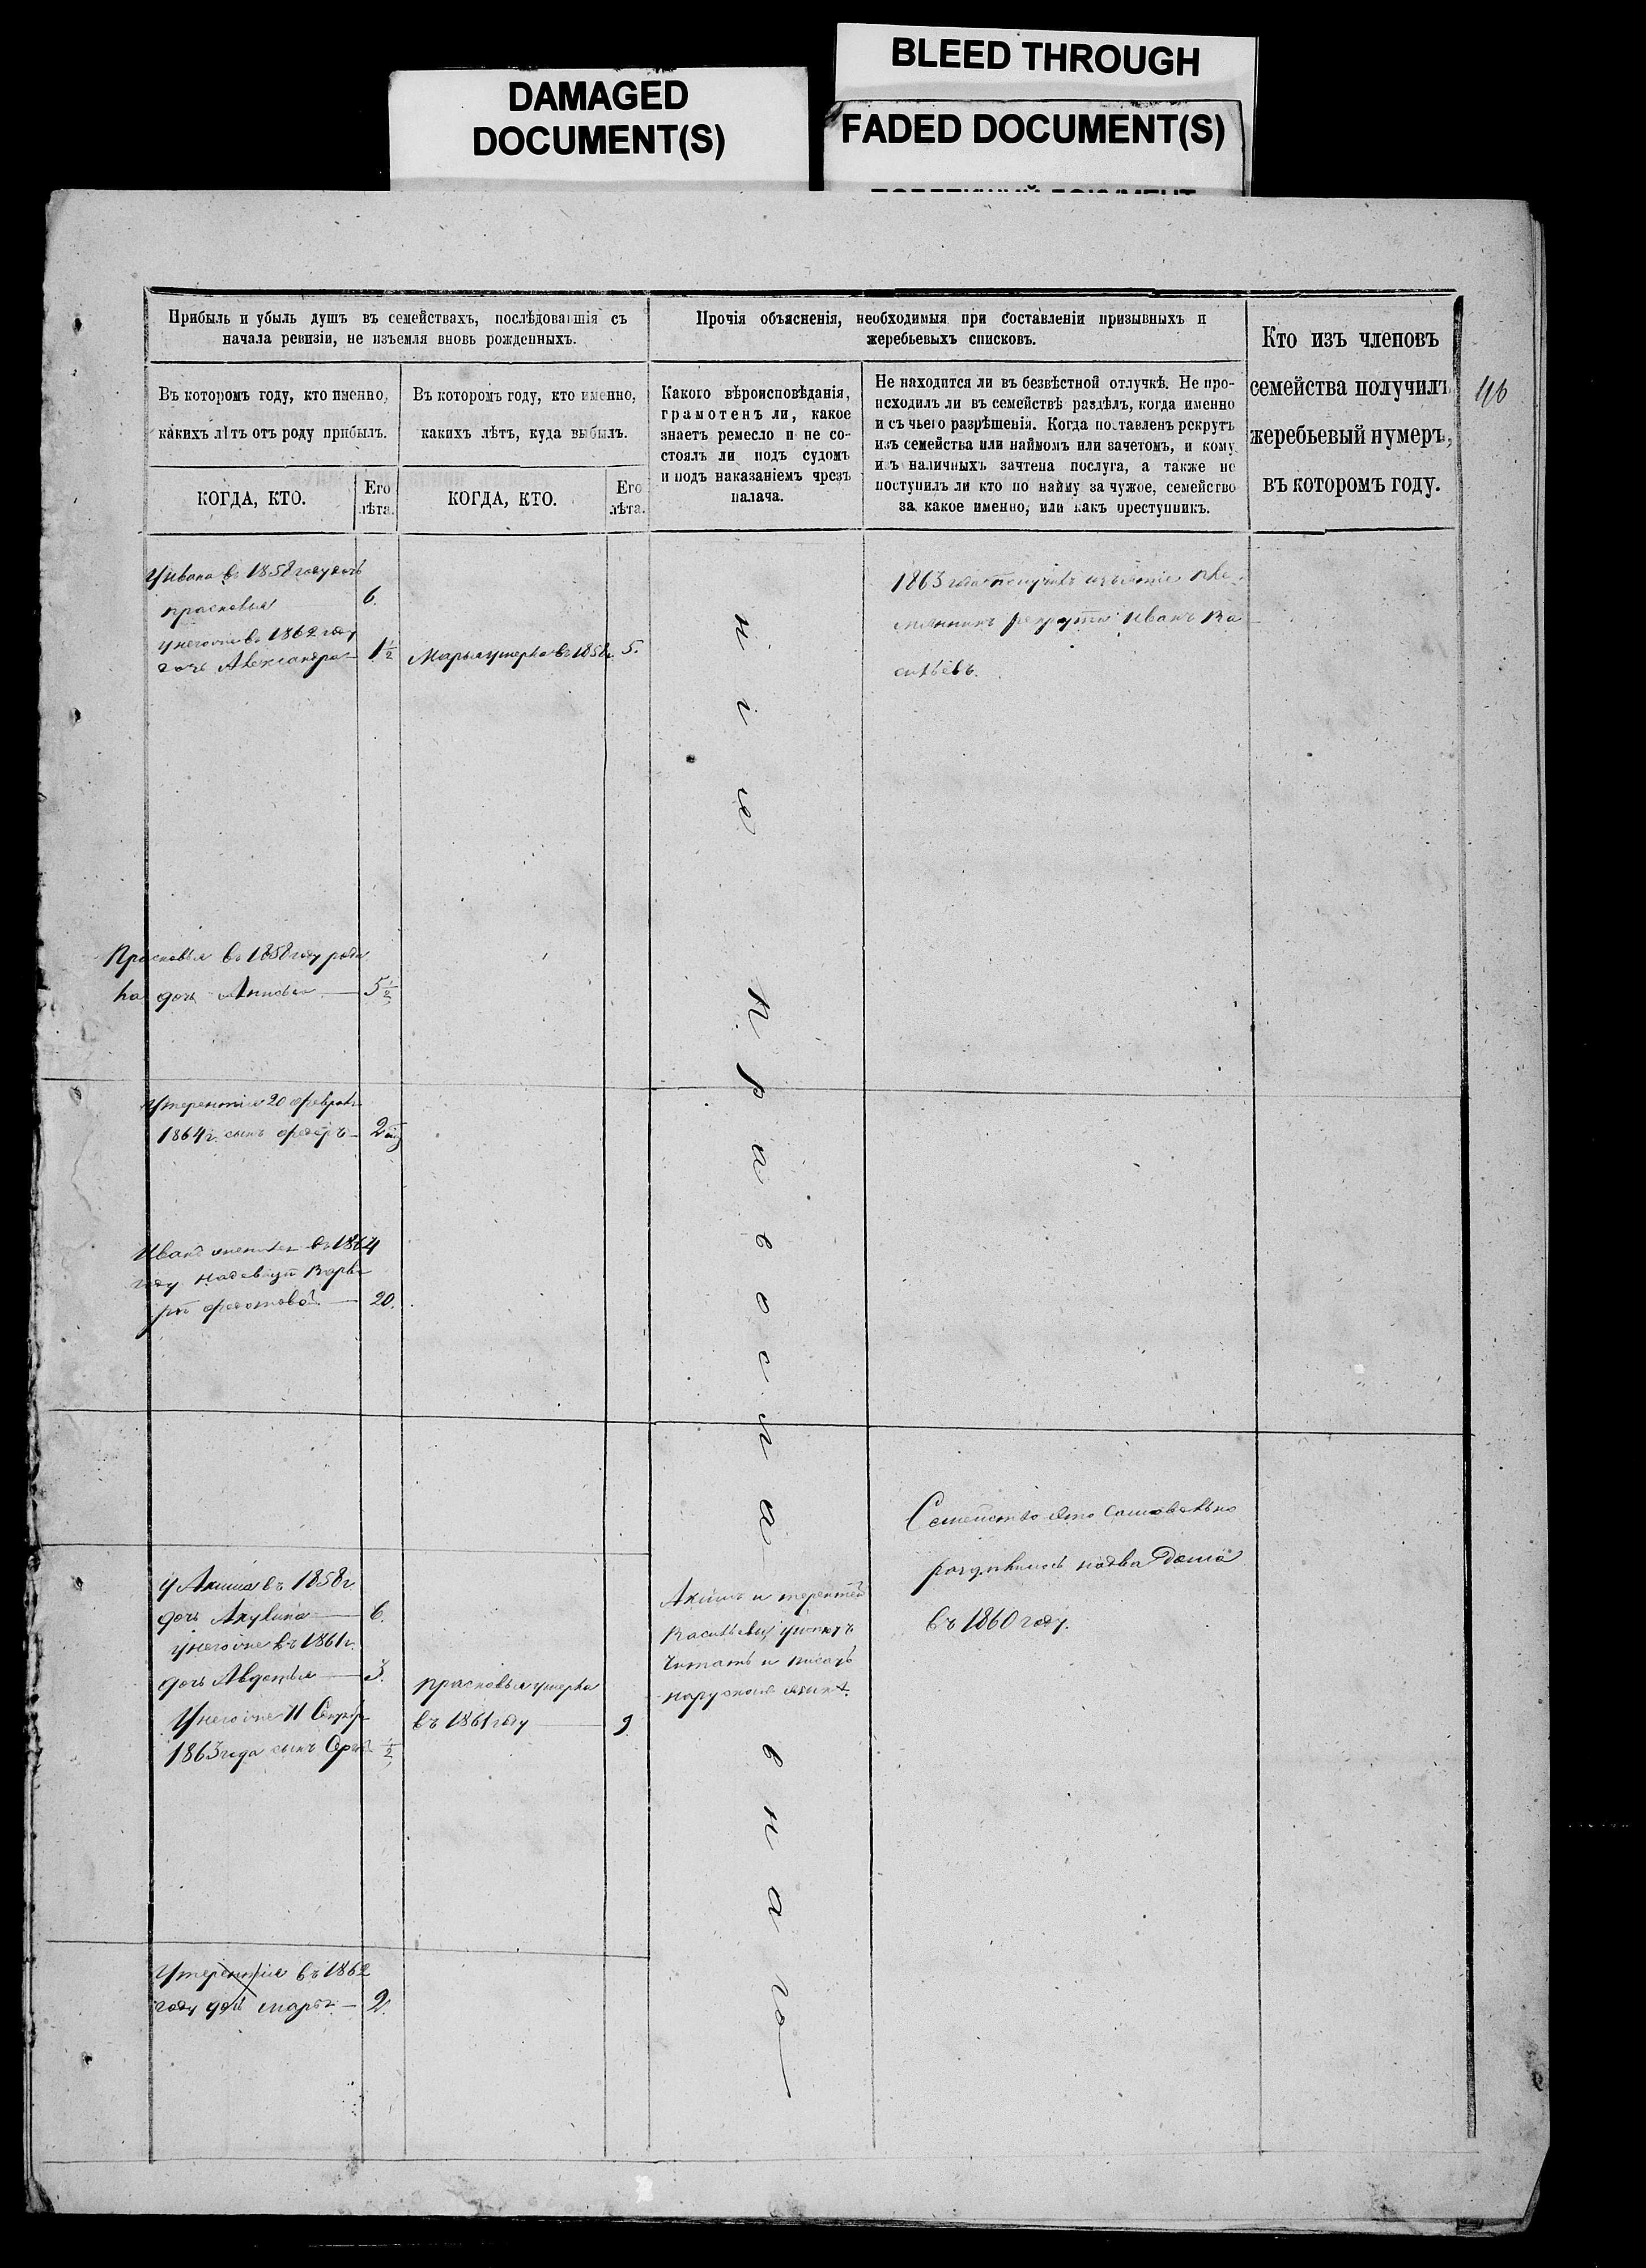 BLEED THROUGH
DAMAGED
DOCUMENT(S)
FADED DOCUMENT(S)
Прибыль и убыль душъ въ семействахъ, послѣдовавшія съ
начала ревизіи, не изъемля вновь рожденныхъ.
Прочія объясненія, необходимыя при составленіи призывныхъ и
жеребьевыхъ списковъ.
Кто изъ членовъ
семейства получилъ
жеребьевый нумеръ,
въ которомъ году.
46
Въ которомъ году, кто именно,
какихъ лѣтъ отъ роду прибылъ.
Въ которомъ году, кто именно,
какихъ лѣтъ, куда выбылъ.
Какого вѣроисповѣданія,
грамотенъ ли, какое
знаетъ ремесло и не со-
стоялъ ли подъ судомъ
и подъ наказаніемъ чрезъ
палача.
Не находится ли въ безвѣстной отлучкѣ. Не про-
исходилъ ли въ семействѣ раздѣлъ, когда именно
и съ чьего разрѣшенія. Когда поставленъ рекрутъ
изъ семейства или наймомъ или зачетомъ, и кому
изъ наличныхъ зачтена послуга, а также не
поступилъ ли кто по найму за чужое, семейство
за какое именно, или какъ преступникъ.
КОГДА, КТО.
Его
лѣта.
КОГДА, КТО.
Его
лѣта.
У Ивана въ 1858 году дочь
Прасковья 6.
у него же въ 1862 году
дочь Александра 1½
Марья умерла въ 1858 г. 5.
1863 года
рекрута Иванъ Ва
сильевъ.
нія
Прасковья въ 1858 году роди
ла дочь 5½
У Терентія 20 Февраля
1864 г. сынъ Федоръ 2
Иванъ женился въ 1864
году на девицѣ Варва
рѣ Федотовой 20.
православнаго
Семейство это самовольно
раздѣлилось на два дома
въ 1860 году.
У Акима въ 1858 г.
дочь Акулина 6.
у него же въ 1861 г.
дочь Авдотья 3.
У него же 11
1863 года сынъ ½
Прасковья умерла
въ 1861 году 9
Акимъ и Терентей
Васильевы умеютъ
читать и писать
на рускомъ языкѣ.
У Терентія въ 1862
году дочь Марья 2.